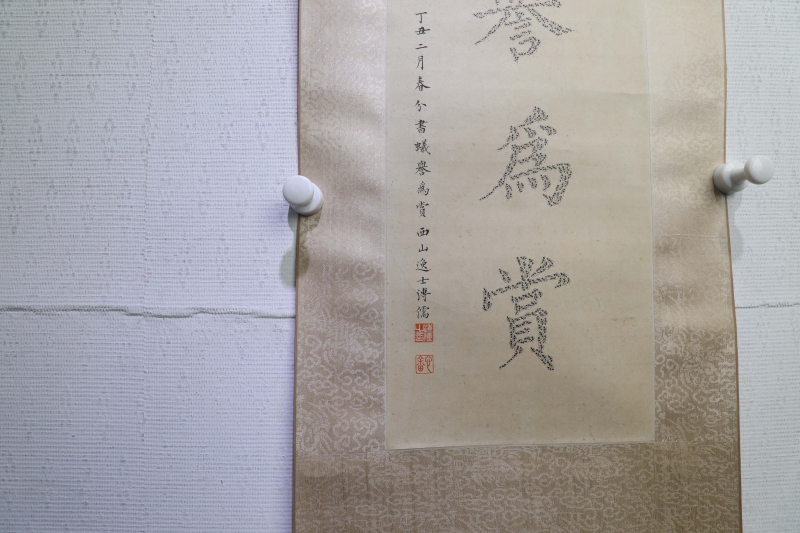 誉為賞
丁丑二月春分書蟻誉為賞西山逸士溥儒